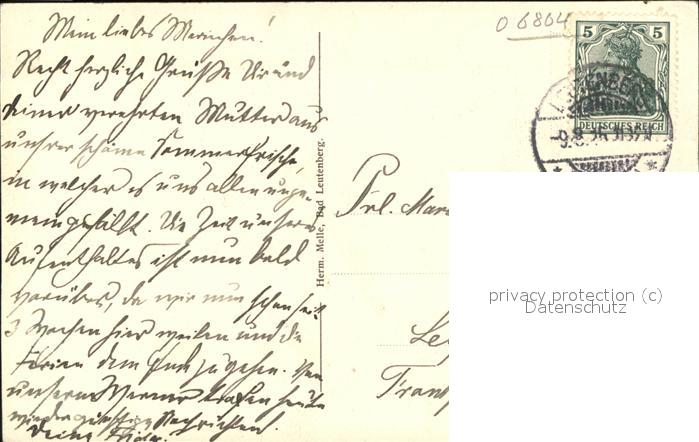 Mein liebes Mariechen!
Recht herzliche Grüße Dir und
Deiner verehrten Mutter aus
unsrer schönen Sommerfrische,
in welcher es uns allen unge-
mein gefällt. Die Zeit unseres
Aufenthaltes ist nun bald
vorüber, da wir nun schon seit
3 Wochen hier weilen und die
Ferien dem Ende zugehen. Von
unserm Werner trafen heute
wieder günstige Nachrichten!
Deine
Herm. Melle, Bad Leutenberg.
0 6804
5 5
DEUTSCHES REICH
LEUTENBERG
-9.8.16
Frl.
privacy protection (c)
Datenschutz